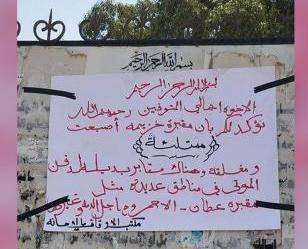 بسم الله الرحمن الرحيم
بسم الله الرحمن الرحيم
الاخوة اهالي المتوفين رحمهم الله
نؤكد لكم بان مقبرة خزيمه أصبحت
(ممتلئة)
و مغلقه وهناك مقابر بديله لدفن
الموتى في مناطق عديدة مثل
مقبرة عطان - الاحمر وماجل الدمه وغيرها
مكتب الاوقاف بالامانه